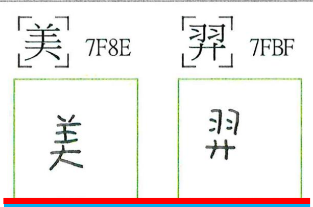 美 7F8E 羿 7FBF
美 羿